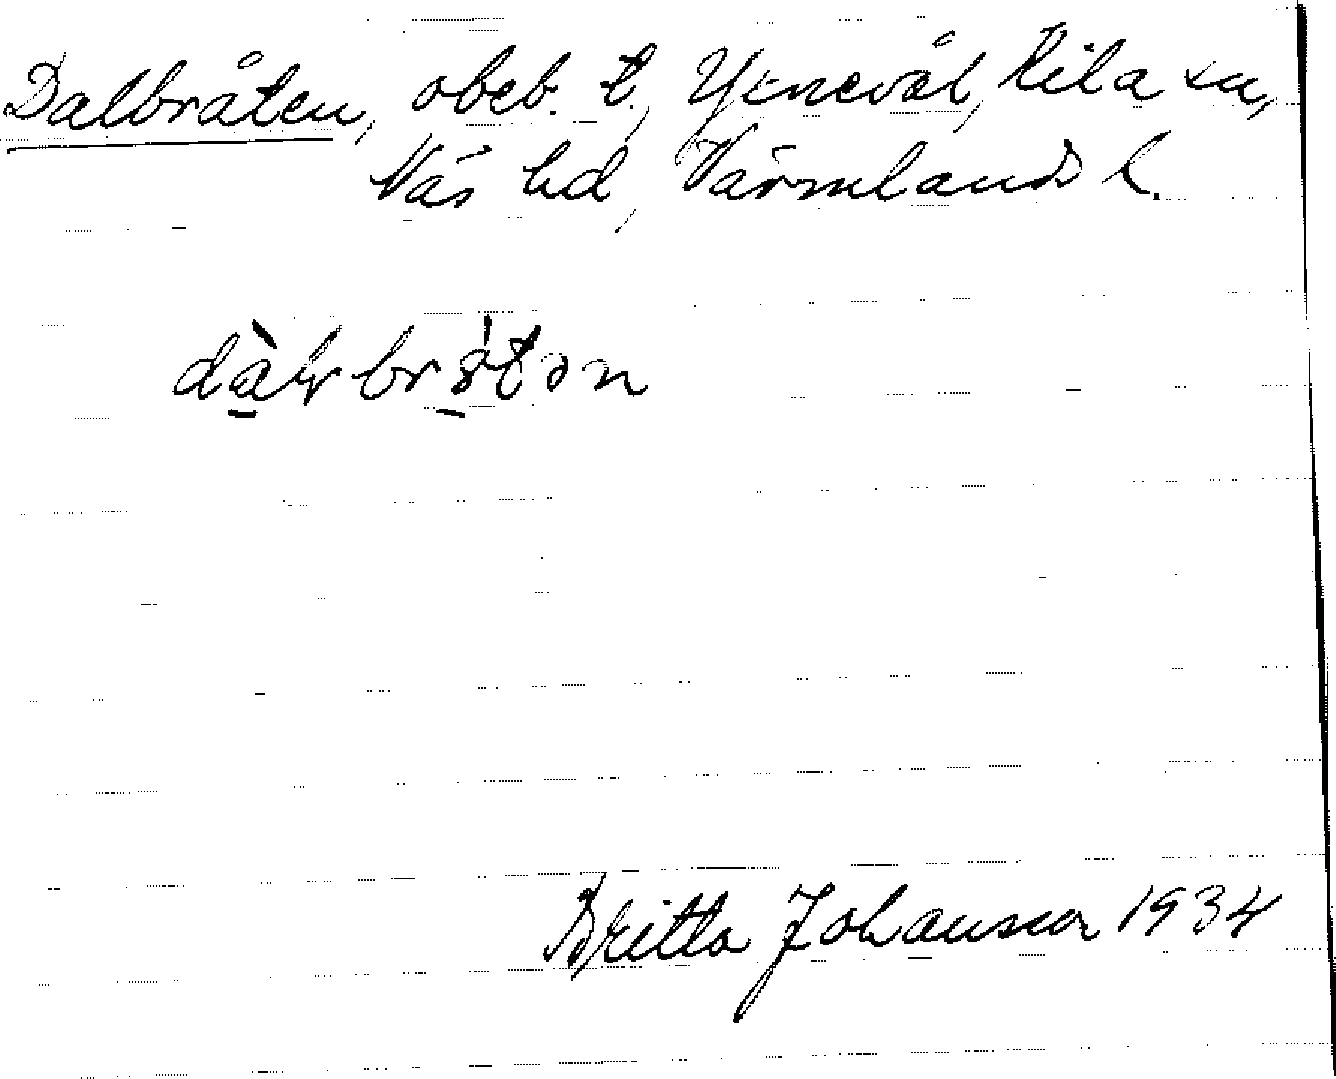 Dalbråten, obeb. t., Ynnevål, Kila sn,
Näs hd, Värmlands l.
Britta Johansson 1934